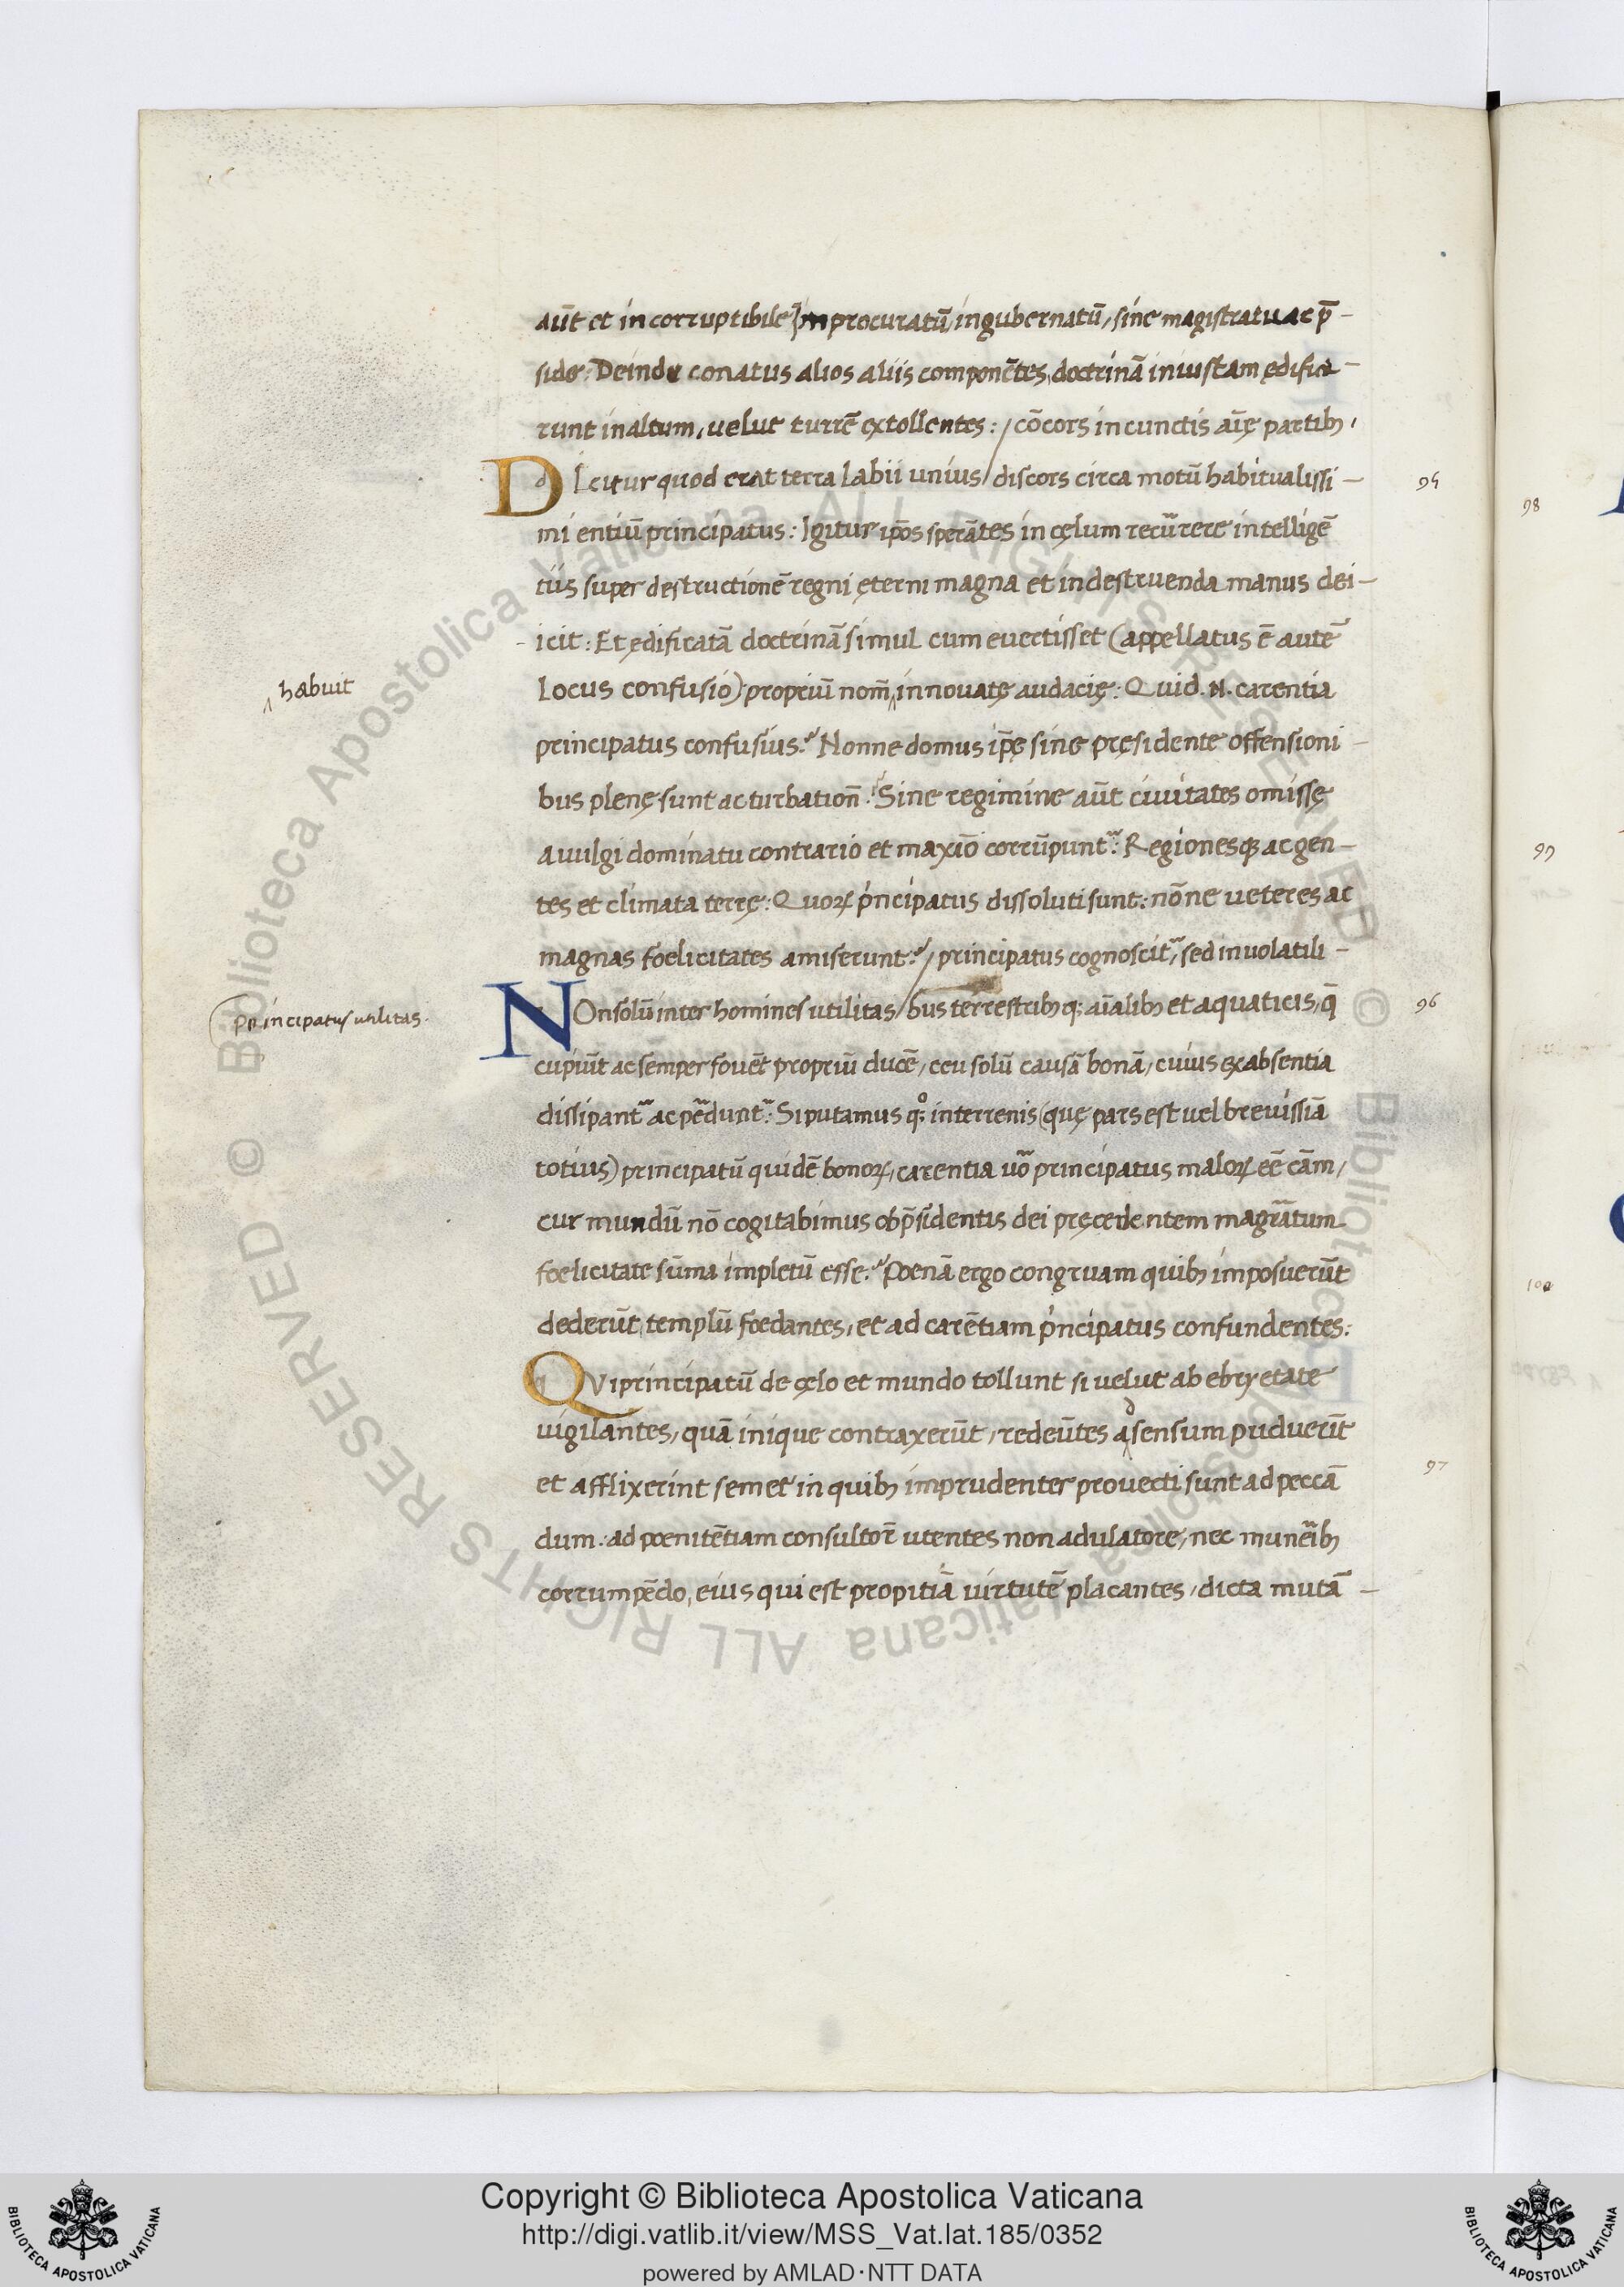 aūt et incorruptibile improcuratū, ingubernatū, sine magistratu ac p̄-
side: Deinde conatus alios aliis componētes, doctrinā iniustam ędifica-
runt in altum, velut turrē extollentes: / cōcors in cunctis aīę partibꝫ,
DIcitur quod erat terra labii unius / discors circa motū habitualissi-
mi entiū principatus: Igitur ip̄os sperātes in cęlum recur̄rere intelligē
tiis super destructionē regni ęterni magna et indestruenda manus dei-
icit: Et ędificatā doctrinā simul cum evertisset (appellatus ē autē
habuit
locus confusio) propriū nom̄ innovatę audacię: Quid .N. carentia
principatus confusius? Nonne domus ip̄ę sine pręsidente offensioni-
bus plenę sunt ac turbation̄? Sine regimine aūt civitates omissę
a vulgi dominatu contrario et maxīo corrūpunt᷑: Regionesqꝫ ac gen-
tes et climata terrę: Quorꝝ pͥncipatus dissoluti sunt: nōne veteres ac
magnas foelicitates amiserunt? / principatus cognoscit᷑, sed in volatili-
NOn solū inter homines utilitas / bus terrestribꝫqꝫ aīalibꝫ et aquaticis, q̄
principatus utilitas.
cupiūt ac semper fovēt propriū ducē, ceu solū causā bonā, cuius ex absentia
dissipant᷑ ac pe᷑dunt᷑: Si putamus qꝫ° in terrenis (quę pars est vel brevissīa
totius) principatū quidē bonorꝝ, carentia vo᷑ principatus malorꝝ eē cām,
cur mundū nō cogitabimus ob p̄sidentis dei pręcedentem magr̄atum
foelicitate sūma impletū esse? Poenā ergo congruam quibꝫ imposuerūt
dederūt, templū foedantes, et ad carētiam pͥncipatus confundentes:
QVi principatū de cęlo et mundo tollunt si velut ab ebryetate
vigilantes, quā inique contraxerūt, redeūtes ad sensum puduerīt
et afflixerint semet in quibꝫ imprudenter provecti sunt ad peccā
dum: ad poenitētiam consultor̄ utentes non adulatore, nec munēibꝫ
corrumpēdo, eius qui est propitiā virtutē placantes, dicta mutā-
95
96
97
98
99
100
Copyright © Biblioteca Apostolica Vaticana
http://digi.vatlib.it/view/MSS_Vat.lat.185/0352
powered by AMLAD·NTT DATA
BIBLIOTECA APOSTOLICA VATICANA
BIBLIOTECA APOSTOLICA VATICANA
© Biblioteca Apostolica Vaticana ALL RIGHTS RESERVED © Biblioteca Apostolica Vaticana ALL RIGHTS RESERVED